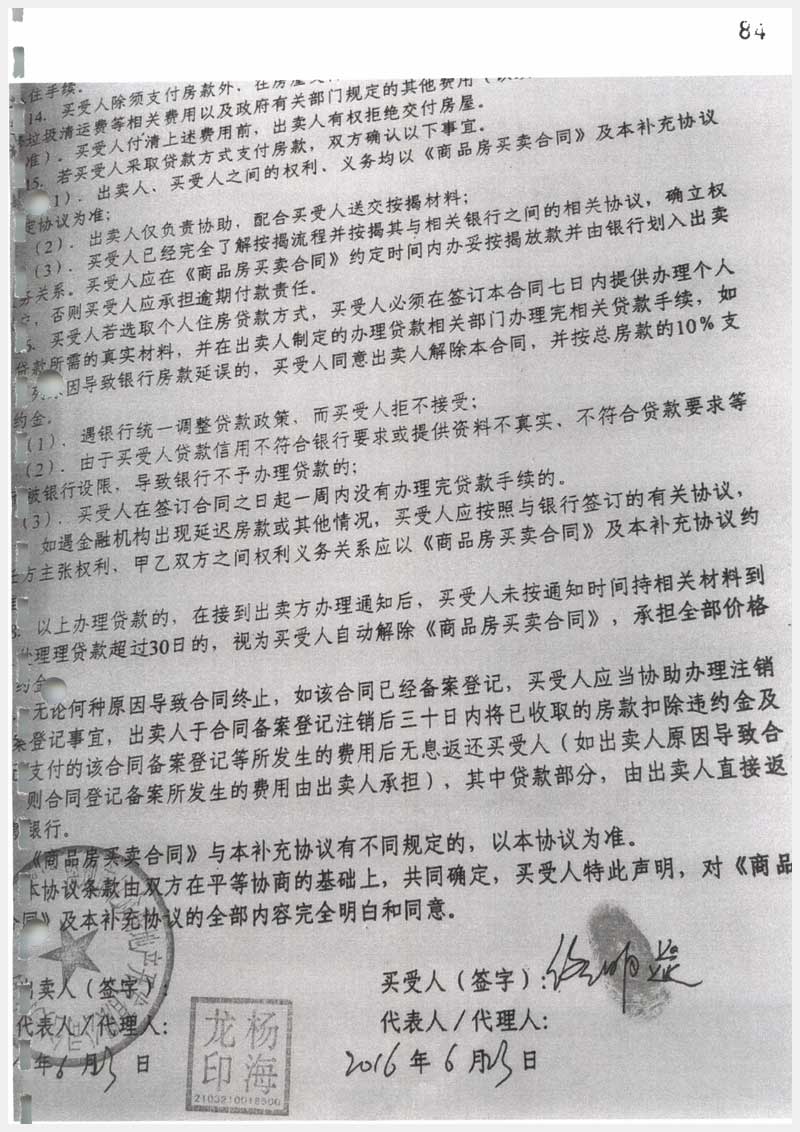 84
住手续。
14. 买受人除须支付房款外，在房屋交
垃圾清运费等相关费用以及政府有关部门规定的其他费用（
准）。买受人付清上述费用前，出卖人有权拒绝交付房屋。
15. 若买受人采取贷款方式支付房款，双方确认以下事宜。
1）．出卖人、买受人之间的权利、义务均以《商品房买卖合同》及本补充协议
定协议为准；
（2）．出卖人仅负责协助，配合买受人送交按揭材料；
（3）．买受人已经完全了解按揭流程并按揭其与相关银行之间的相关协议，确立权
务关系。买受人应在《商品房买卖合同》约定时间内办妥按揭放款并由银行划入出卖
，否则买受人应承担逾期付款责任。
买受人若选取个人住房贷款方式，买受人必须在签订本合同七日内提供办理个人
贷款所需的真实材料，并在出卖人制定的办理贷款相关部门办理完相关贷款手续，如
原因导致银行房款延误的，买受人同意出卖人解除本合同，并按总房款的10％支
约金。
（1）．遇银行统一调整贷款政策，而买受人拒不接受；
（2）．由于买受人贷款信用不符合银行要求或提供资料不真实、不符合贷款要求等
被银行设限，导致银行不予办理贷款的；
（3）．买受人在签订合同之日起一周内没有办理完贷款手续的。
如遇金融机构出现延迟房款或其他情况，买受人应按照与银行签订的有关协议，
方主张权利、甲乙双方之间权利义务关系应以《商品房买卖合同》及本补充协议约
以上办理贷款的，在接到出卖方办理通知后，买受人未按通知时间持相关材料到
理理贷款超过30日的，视为买受人自动解除《商品房买卖合同》，承担全部价格
约金
无论何种原因导致合同终止，如该合同已经备案登记，买受人应当协助办理注销
案登记事宜，出卖人于合同备案登记注销后三十日内将已收取的房款扣除违约金及
支付的该合同备案登记等所发生的费用后无息返还买受人（如出卖人原因导致合
则合同登记备案所发生的费用由出卖人承担），其中贷款部分，由出卖人直接返
银行。
《商品房买卖合同》与本补充协议有不同规定的，以本协议为准。
本协议条款由双方在平等协商的基础上，共同确定，买受人特此声明，对《商品
合同》及本补充协议的全部内容完全明白和同意。
出卖人（签字）：
买受人（签字）：
代表人／代理人：
代表人／代理人：
杨海龙印
2103210018500
年6月23日
2016年6月23日